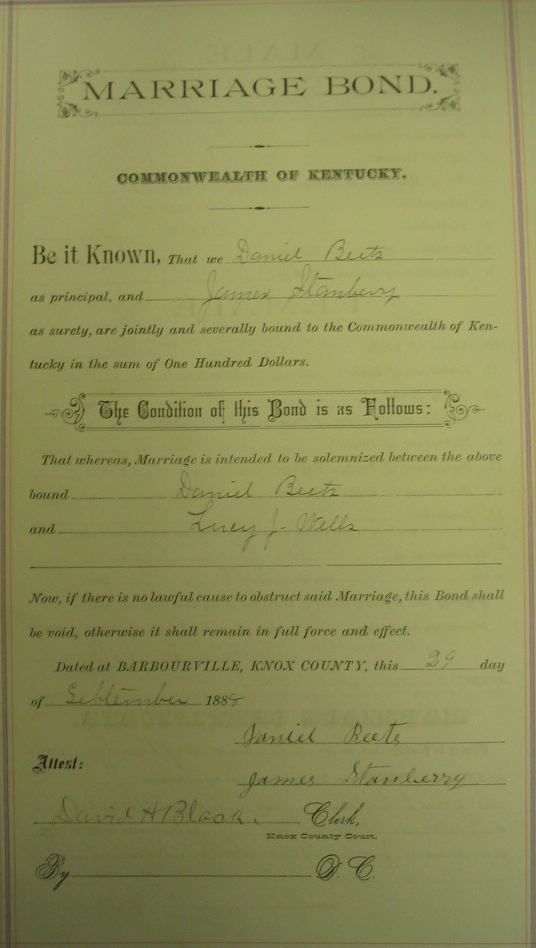 MARRIAGE BOND.
COMMONWEALTH OF KENTUCKY.
Be it Known, That we Daniel Beets
as principal, and James Stanbery
as surety, are jointly and severally bound to the Commonwealth of Ken-
tucky in the sum of One Hundred Dollars.
The Condition of this Bond is as Follows:
That whereas, Marriage is intended to be solemnized between the above
bound Daniel Beets
and Lucy J. Wells
Now, if there is no lawful cause to obstruct said Marriage, this Bond shall
be void, otherwise it shall remain in full force and effect.
Dated at BARBOURVILLE, KNOX COUNTY, this 29 day
of September 1888
Daniel Beets
Attest:
James Stanberry
David H Black. Clerk,
Knox County Court.
By D. C.